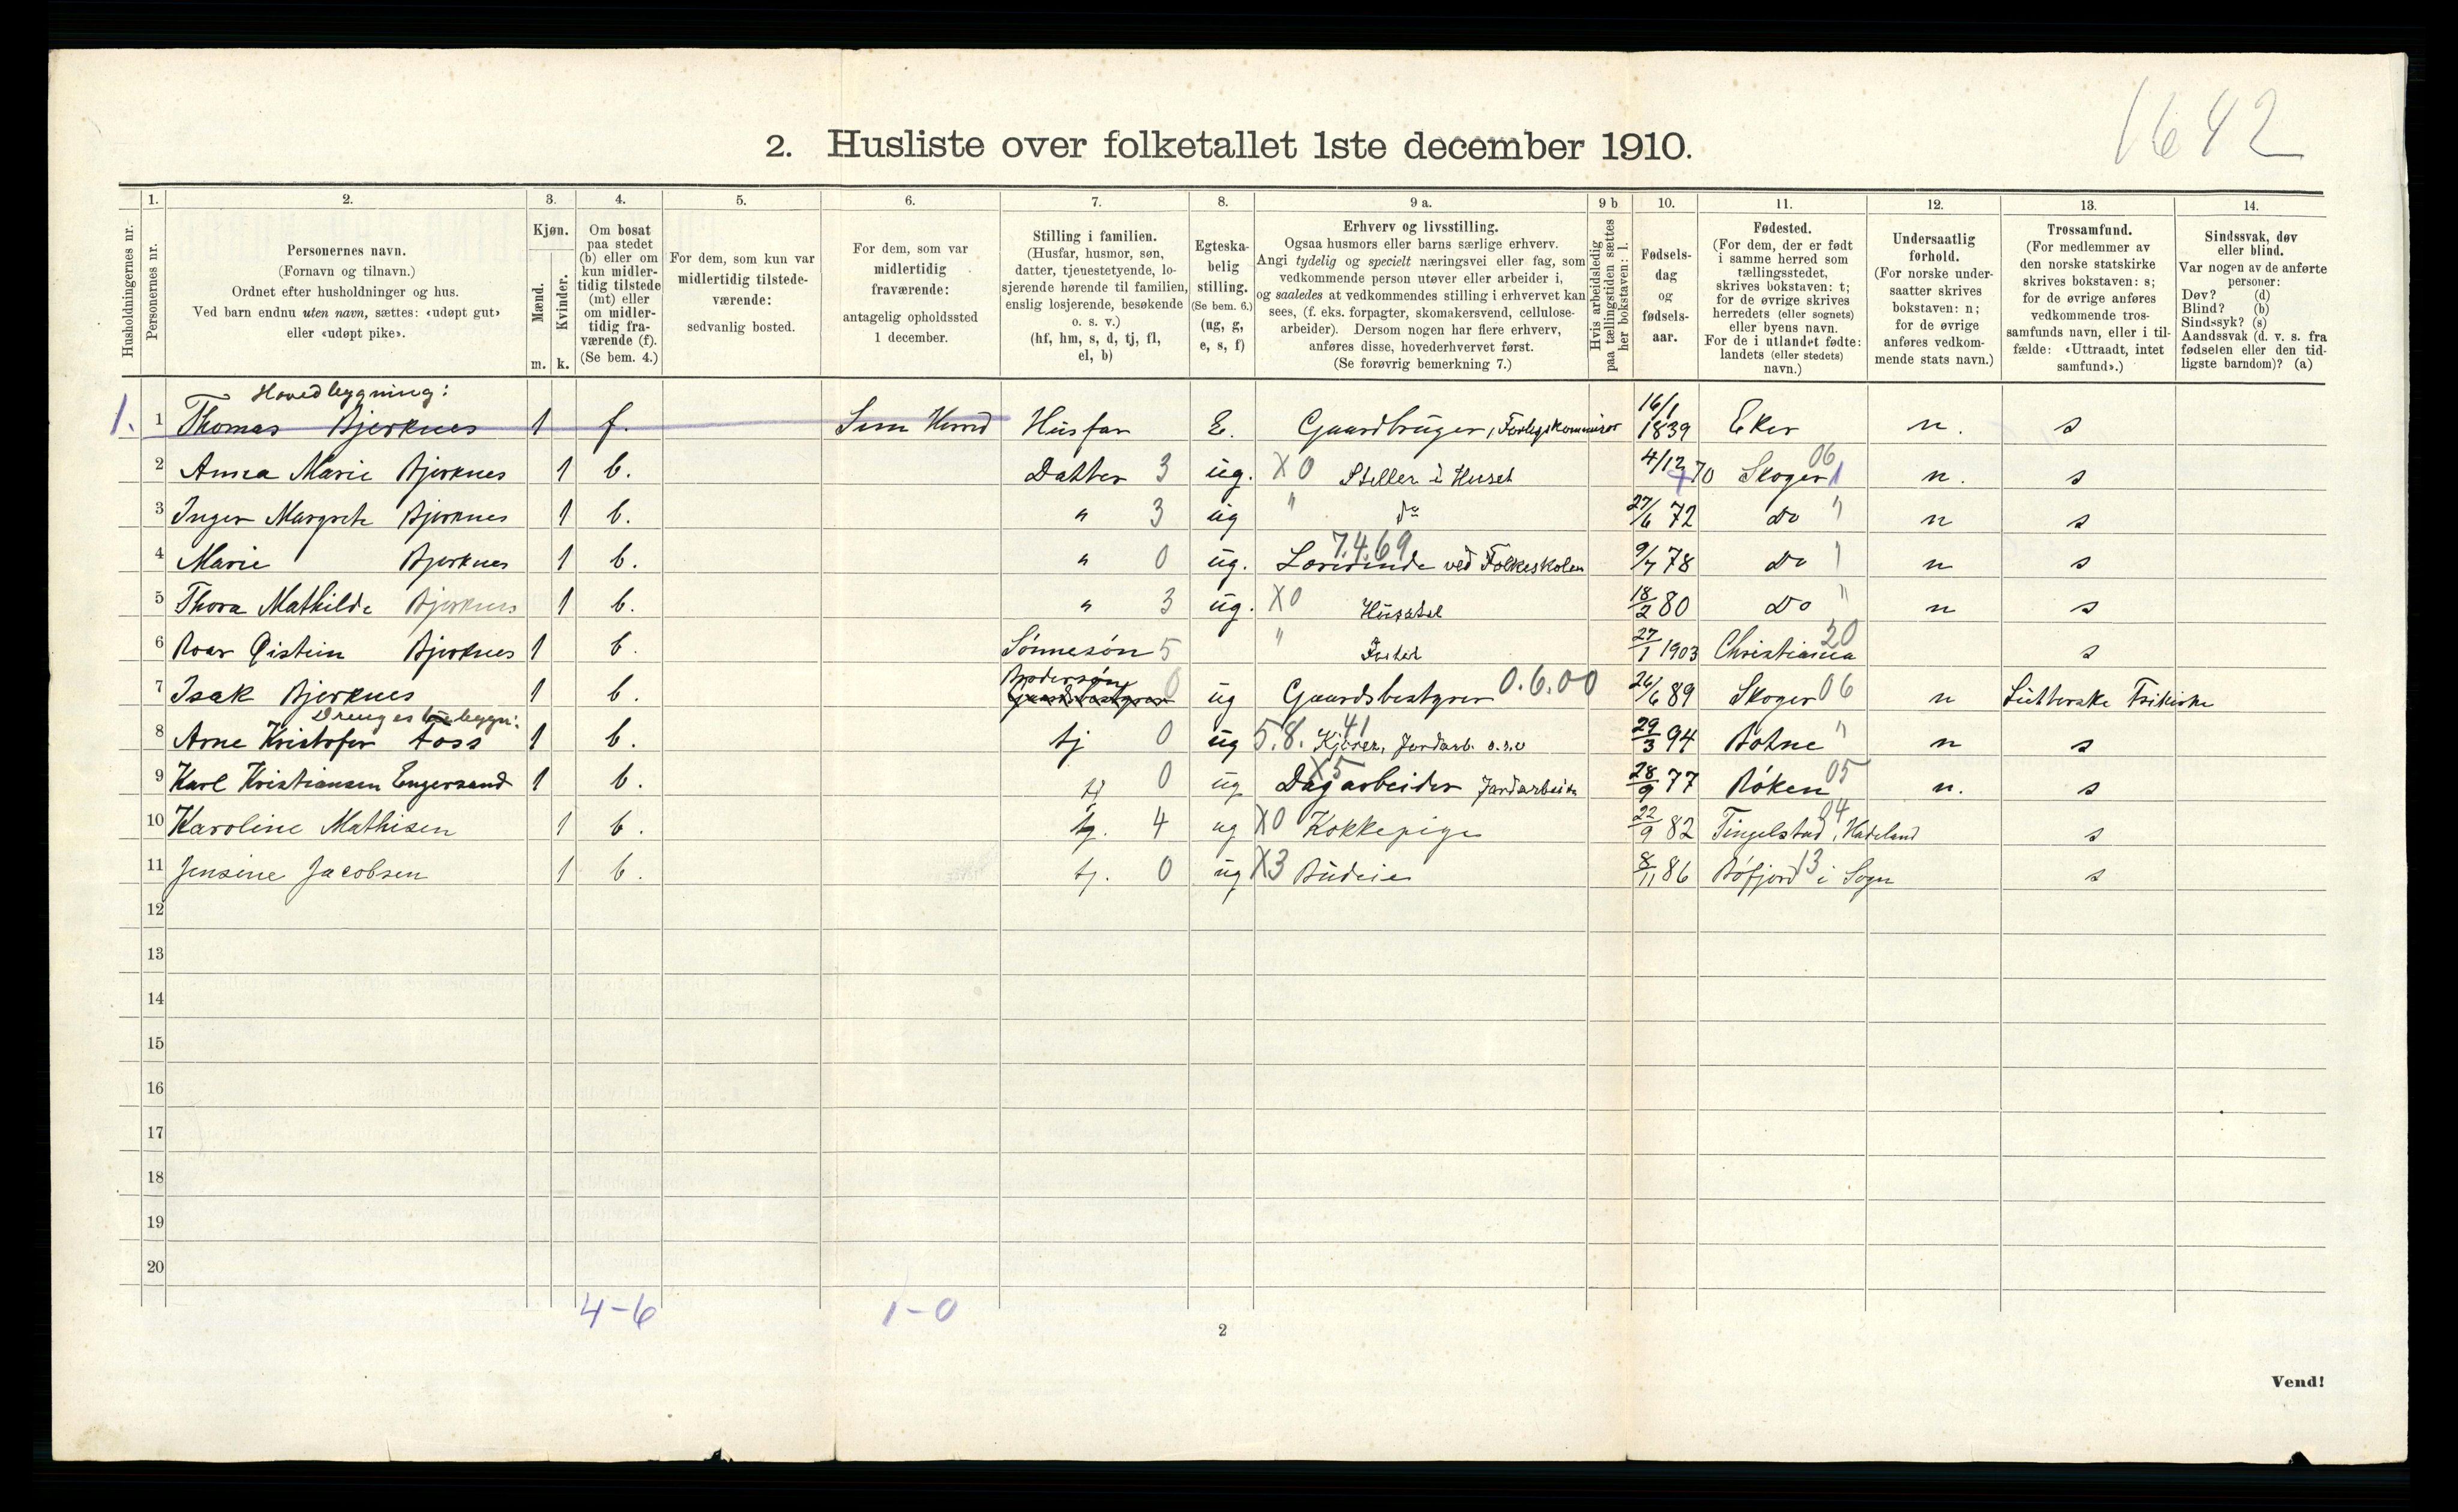 1642
2. Husliste over folketallet 1ste december 1910.
Husholdningernes nr.
1. 2. 3. 4. 5. 6. 7. 8. 9 a. 9 b 10. 11. 12. 13. 14.
Personernes nr.
Personernes navn.
(Fornavn og tilnavn.)
Ordnet efter husholdninger og hus.
Ved barn endnu uten navn, sættes: «udøpt gut»
eller «udøpt pike».
Kjøn.
Mænd.
Kvinder.
m. k.
Om bosat
paa stedet
(b) eller om
kun midler-
tidig tilstede
(mt) eller
om midler-
tidig fra-
værende (f).
(Se bem. 4.)
For dem, som kun var
midlertidig tilstede-
værende:
sedvanlig bosted.
For dem, som var
midlertidig
fraværende:
antagelig opholdssted
1 december.
Stilling i familien.
(Husfar, husmor, søn,
datter, tjenestetyende, lo-
sjerende hørende til familien,
enslig losjerende, besøkende
o. s. v.)
(hf, hm, s, d, tj, fl,
el, b)
Egteska-
belig
stilling.
(Se bem. 6.)
(ug, g,
e, s, f)
Erhverv og livsstilling.
Ogsaa husmors eller barns særlige erhverv.
Angi tydelig og specielt næringsvei eller fag, som
vedkommende person utøver eller arbeider i,
og saaledes at vedkommendes stilling i erhvervet kan
sees, (f. eks. forpagter, skomakersvend, cellulose-
arbeider). Dersom nogen har flere erhverv,
anføres disse, hovederhvervet først.
(Se forøvrig bemerkning 7.)
Hvis arbeidsledig
paa tællingstiden sættes
her bokstaven: l.
Fødsels-
dag
og
fødsels-
aar.
Fødested.
(For dem, der er født
i samme herred som
tællingsstedet,
skrives bokstaven: t;
for de øvrige skrives
herredets (eller sognets)
eller byens navn.
For de i utlandet fødte:
landets (eller stedets)
navn.)
Undersaatlig
forhold.
(For norske under-
saatter skrives
bokstaven: n;
for de øvrige
anføres vedkom-
mende stats navn.)
Trossamfund.
(For medlemmer av
den norske statskirke
skrives bokstaven: s;
for de øvrige anføres
vedkommende tros-
samfunds navn, eller i til-
fælde: «Uttraadt, intet
samfund».)
Sindssvak, døv
eller blind.
Var nogen av de anførte
personer:
Døv? (d)
Blind? (b)
Sindssyk? (s)
Aandssvak (d. v. s. fra
fødselen eller den tid-
ligste barndom)? (a)
Hovedbygning:
1. 1 Thomas Bjerknes 1 f. Sem Herred Husfar E. Gaardbruger, 16/1 1839 Eker n. s
2 Anna Marie Bjerknes 1 b. Datter 3 ug. X0 Steller i Huset 4/12 70 Skoger 06 1 n. s
3 Inger Margrete Bjerknes 1 b. " 3 ug " do 27/6 72 do " n s
4 Marie Bjerknes 1 b. " 0 ug. 7.4.69 Lærerinde ved Folkeskolen 9/7 78 do " n s
5 Thora Mathilde Bjerknes 1 b. " 3 ug. X0 Husstel 18/2 80 do " n s
6 Roar Øistein Bjerknes 1 b. Sønnesøn 5 " 27/1 1903 Christiania 20 s
7 Isak Bjerknes 1 b. Brodersøn Gaardsbestyrer 0 ug Gaardsbestyrer 0.6.00 26/6 89 Skoger 06 n Lutterske Frikirke
8 Arne Kristofer Foss 1 b. tj 0 ug 5.8.41 Kjører, Jordarb. o.s.v 29/3 94 Botne " n s
9 Karl Kristiansen Engersand 1 b. tj 0 ug X5 Dagarbeider Jordarbeide 28/9 77 Røken 05 n. s
10 Karoline Mathisen 1 b. tj. 4 ug X0 Kokkepige 22/9 82 Tingelstad, Hadeland 04 s
11 Jensine Jacobsen 1 b. tj. 0 ug X3 Budeie 8/11 86 i Sogn 13 s
12
13
14
15
16
17
18
19
20
4-6 1-0
2
Vend!